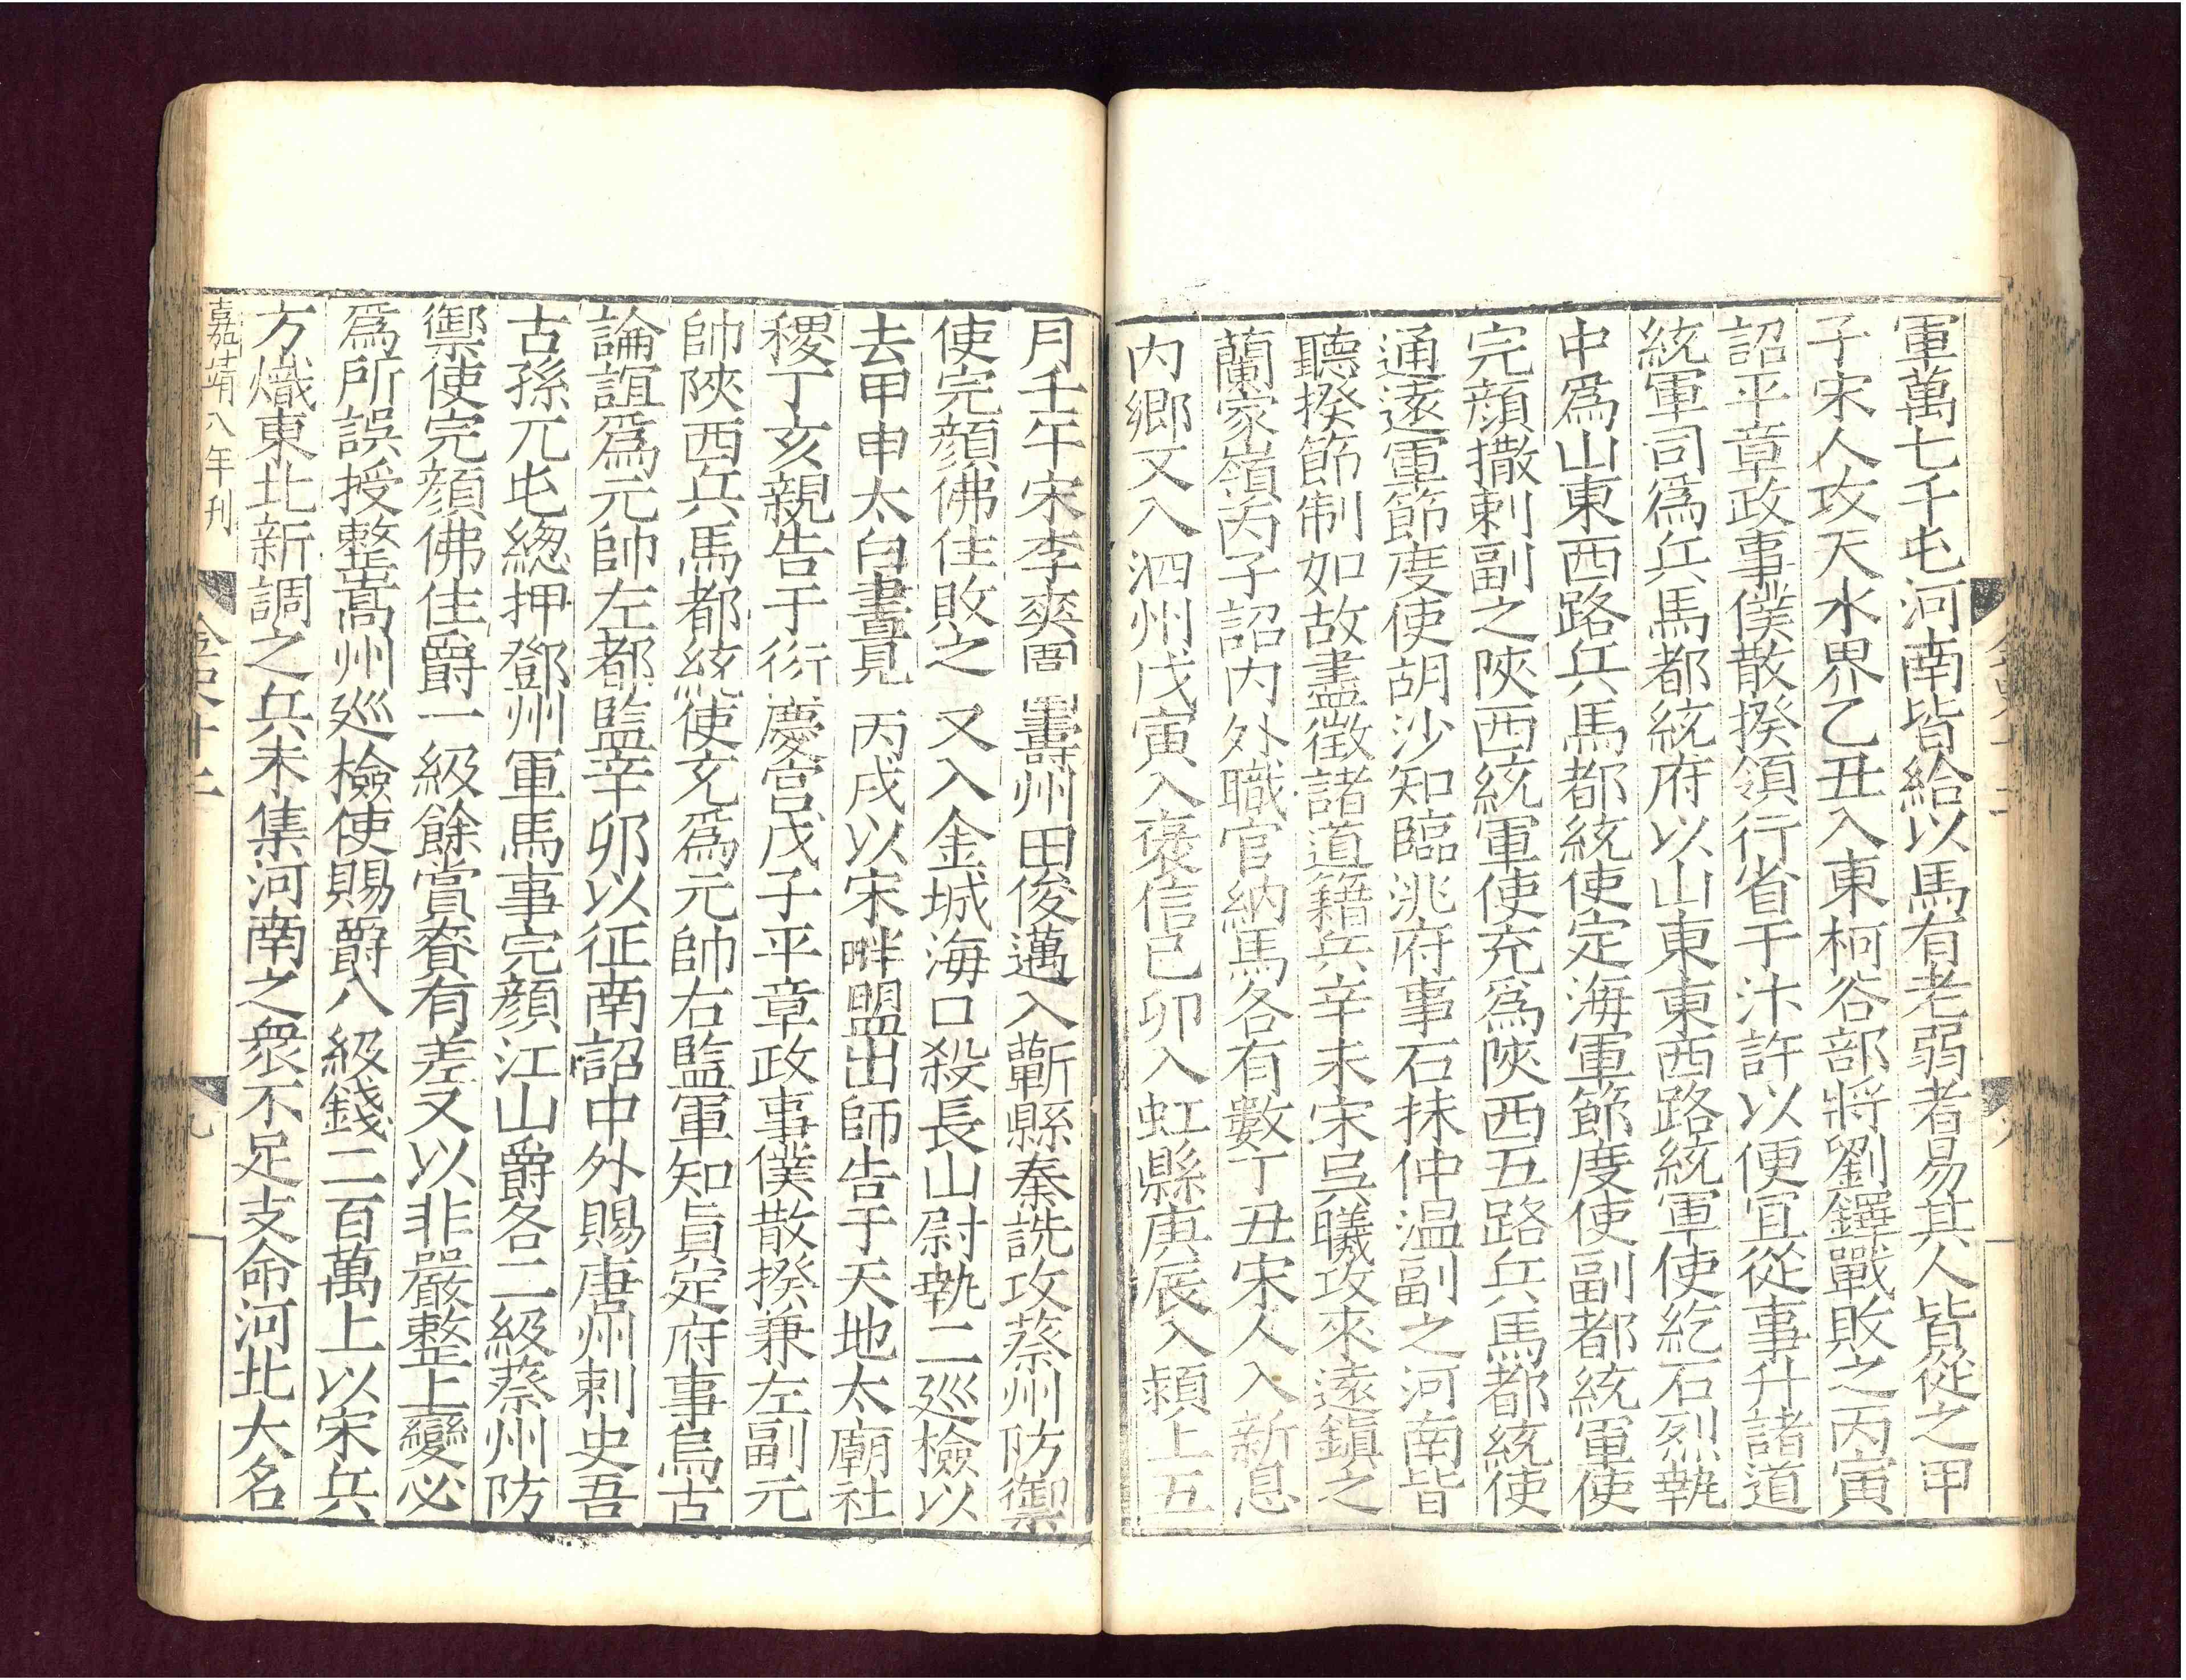 軍萬七千屯河南皆給以馬有老弱者易其人皆從之甲
子宋人攻天水界乙丑入東柯谷部將劉鐸戰敗之丙寅
詔平章政事僕散揆領行省于汴許以便宜從事升諸道
統軍司爲兵馬都統府以山東東西路統軍使紇石烈執
中爲山東西路兵馬都統使定海軍節度使副都統軍使
完顔撒剌副之陝西統軍使充爲陝西五路兵馬都統使
通遠軍節度使胡沙知臨洮府事石抹仲温副之河南皆
聽揆節制如故盡徵諸道籍兵辛未宋吳曦攻來遠鎮之
蘭家嶺丙子詔内外職官納馬各有數丁丑宋人入新息
内鄉又入泗州戊寅入褒信己卯入虹縣庚辰入潁上五
月壬午宋李爽圍壽州田俊邁入蘄縣秦詵攻蔡州防禦
使完顔佛住敗之又入金城海口殺長山尉執二巡檢以
去甲申太白晝見丙戌以宋畔盟出師告于天地太廟社
稷丁亥親告于衍慶宫戊子平章政事僕散揆兼左副元
帥陝西兵馬都統使充爲元帥右監軍知真定府事烏古
論誼爲元帥左都監辛卯以征南詔中外賜唐州刺史吾
古孫兀屯緫押鄧州軍馬事完顔江山爵各二級蔡州防
禦使完顔佛住爵一級餘賞賚有差又以非嚴整上變必
爲所誤授整嵩州巡檢使賜爵八級錢二百萬上以宋兵
方熾東北新調之兵未集河南之衆不足支命河北大名
嘉靖八年刊
金史十二
九